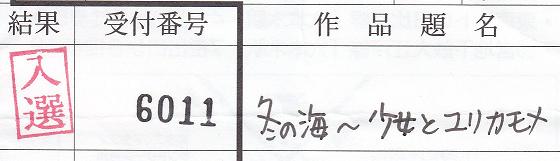 結果 受付番号 作品題名
入選 6011 冬の海～少女とユリカモメ